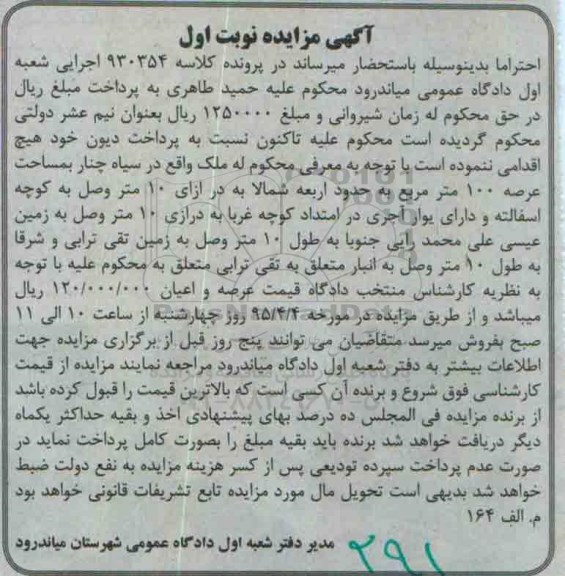 آگهی مزایده نوبت اول
احتراما بدینوسیله باستحضار میرساند در پرونده کلاسه ۹۳۰۳۵۴ اجرایی شعبه
اول دادگاه عمومی میاندرود محکوم علیه حمید طاهری به پرداخت مبلغ ریال
در حق محکوم له زمان شیروانی و مبلغ ۱۲۵۰۰۰۰ ریال بعنوان نیم عشر دولتی
محکوم گردیده است محکوم علیه تاکنون نسبت به پرداخت دیون خود هیچ
اقدامی ننموده است با توجه به معرفی محکوم له ملک واقع در سیاه چنار بمساحت
عرصه ۱۰۰ متر مربع به حدود اربعه شمالا به در ازای ۱۰ متر وصل به کوچه
اسفالته و دارای یوار آجری در امتداد کوچه غربا به درازی ۱۰ متر وصل به زمین
عیسی علی محمد رایی جنوبا به طول ۱۰ متر وصل به زمین تقی ترابی و شرقا
به طول ۱۰ متر وصل به انبار متعلق به تقی ترابی متعلق به محکوم علیه با توجه
به نظریه کارشناس منتخب دادگاه قیمت عرصه و اعیان ۱۲۰/۰۰۰/۰۰۰ ریال
میباشد و از طریق مزایده در مورخه ۹۵/۴/۲ روز چهارشنبه از ساعت ۱۰ الی ۱۱
صبح بفروش میرسد متقاضیان می توانند پنج روز قبل از برگزاری مزایده جهت
اطلاعات بیشتر به دفتر شعبه اول دادگاه میاندرود مراجعه نمایند مزایده از قیمت
کارشناسی فوق شروع و برنده آن کسی است که بالاترین قیمت را قبول کرده باشد
از برنده مزایده فی المجلس ده درصد بهای پیشنهادی اخذ و بقیه حداکثر یکماه
دیگر دریافت خواهد شد برنده باید بقیه مبلغ را بصورت کامل پرداخت نماید در
صورت عدم پرداخت سپرده تودیعی پس از کسر هزینه مزایده به نفع دولت ضبط
خواهد شد بدیهی است تحویل مال مورد مزایده تابع تشریفات قانونی خواهد بود
م. الف ۱۶۴
مدیر دفتر شعبه اول دادگاه عمومی شهرستان میاندرود
۲۹۱